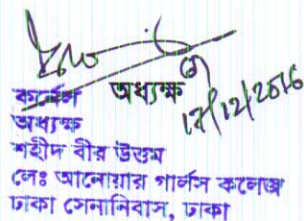 অধ্যক্ষ
17/12/2016
কর্নেল
অধ্যক্ষ
শহীদ বীর উত্তম
লেঃ আনোয়ার গার্লস কলেজ
ঢাকা সেনানিবাস, ঢাকা